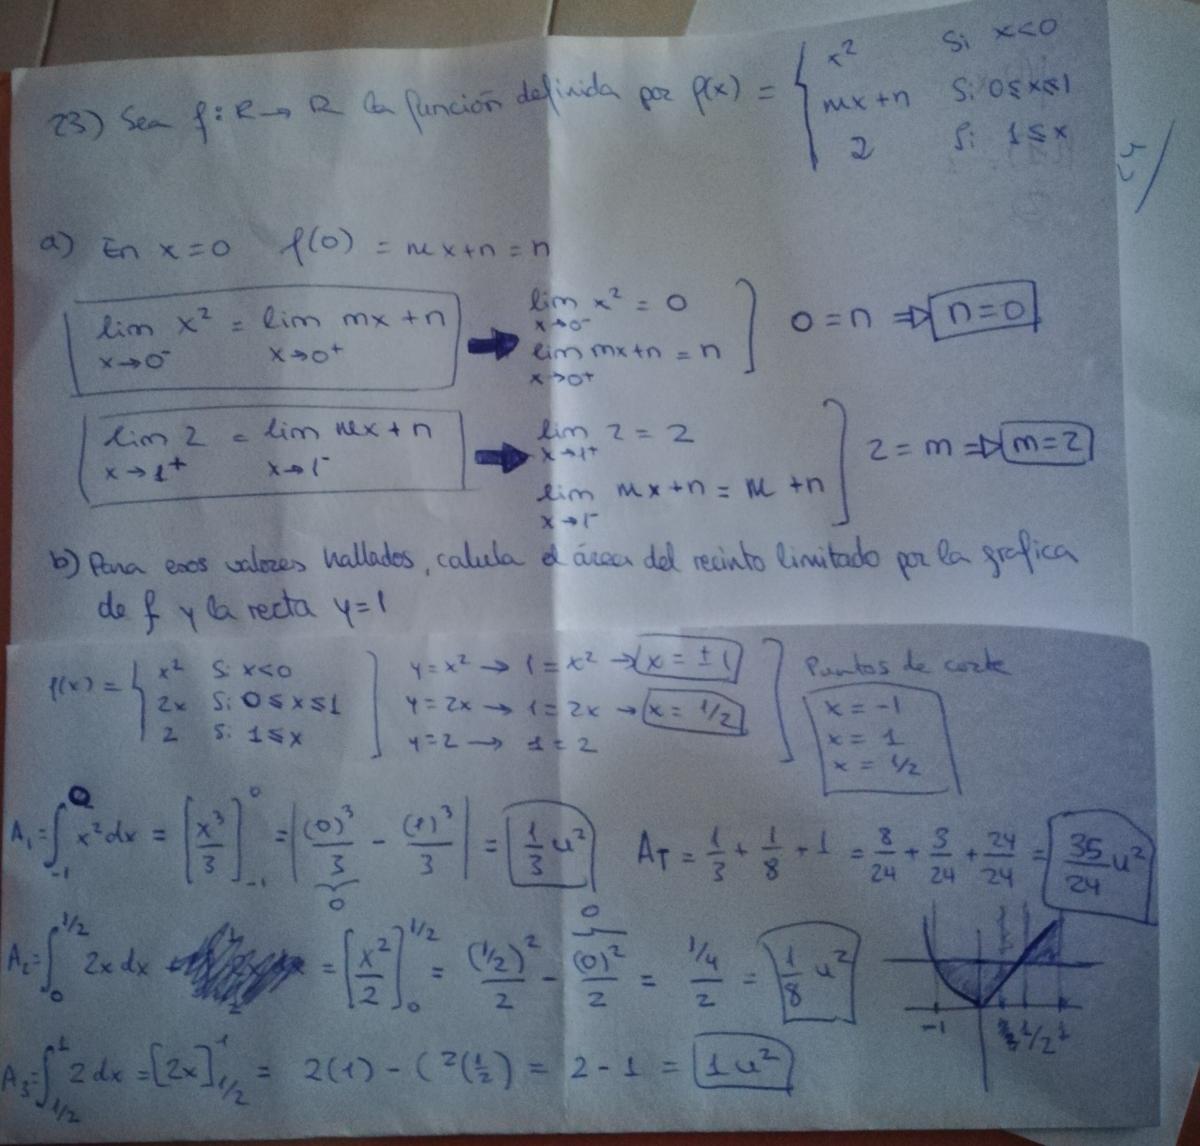 23) Sea f: R → R la función definida por f(x) = { x² Si x<0
mx+n Si 0≤x≤1
2 Si 1≤x
a) En x=0 f(0) = mx+n = n
lim x² = lim mx+n ➡ lim x² = 0
x→0⁻ x→0⁺ x→0⁻
lim mx+n = n
x→0⁺
] 0=n ⇒ n=0
lim 2 = lim mx+n ➡ lim 2 = 2
x→1⁺ x→1⁻ x→1⁺
lim mx+n = m+n
x→1⁻
] 2=m ⇒ m=2
b) Para esos valores hallados, calula el área del recinto limitado por la grafica
de f y la recta y=1
f(x) = { x² Si x<0
2x Si 0≤x≤1
2 Si 1≤x
y=x² → 1=x² → x=±1
y=2x → 1=2x → x=1/2
y=2 → 1=2
Puntos de corte
x=-1
x=1
x=1/2
A₁=∫₋₁⁰ x²dx = [x³/3]₋₁⁰ = |(0)³/3 - (1)³/3| = 1/3 u²
0
A_T = 1/3 + 1/8 + 1 = 8/24 + 3/24 + 24/24 = 35/24 u²
A₂=∫₀^1/2 2x dx = [x²/2]₀^1/2 = (1/2)²/2 - (0)²/2 = 1/4/2 = 1/8 u²
0
A₃=∫_1/2^1 2 dx = [2x]_1/2^1 = 2(1) - (2(1/2) = 2-1 = 1u²
-1 1/2 1